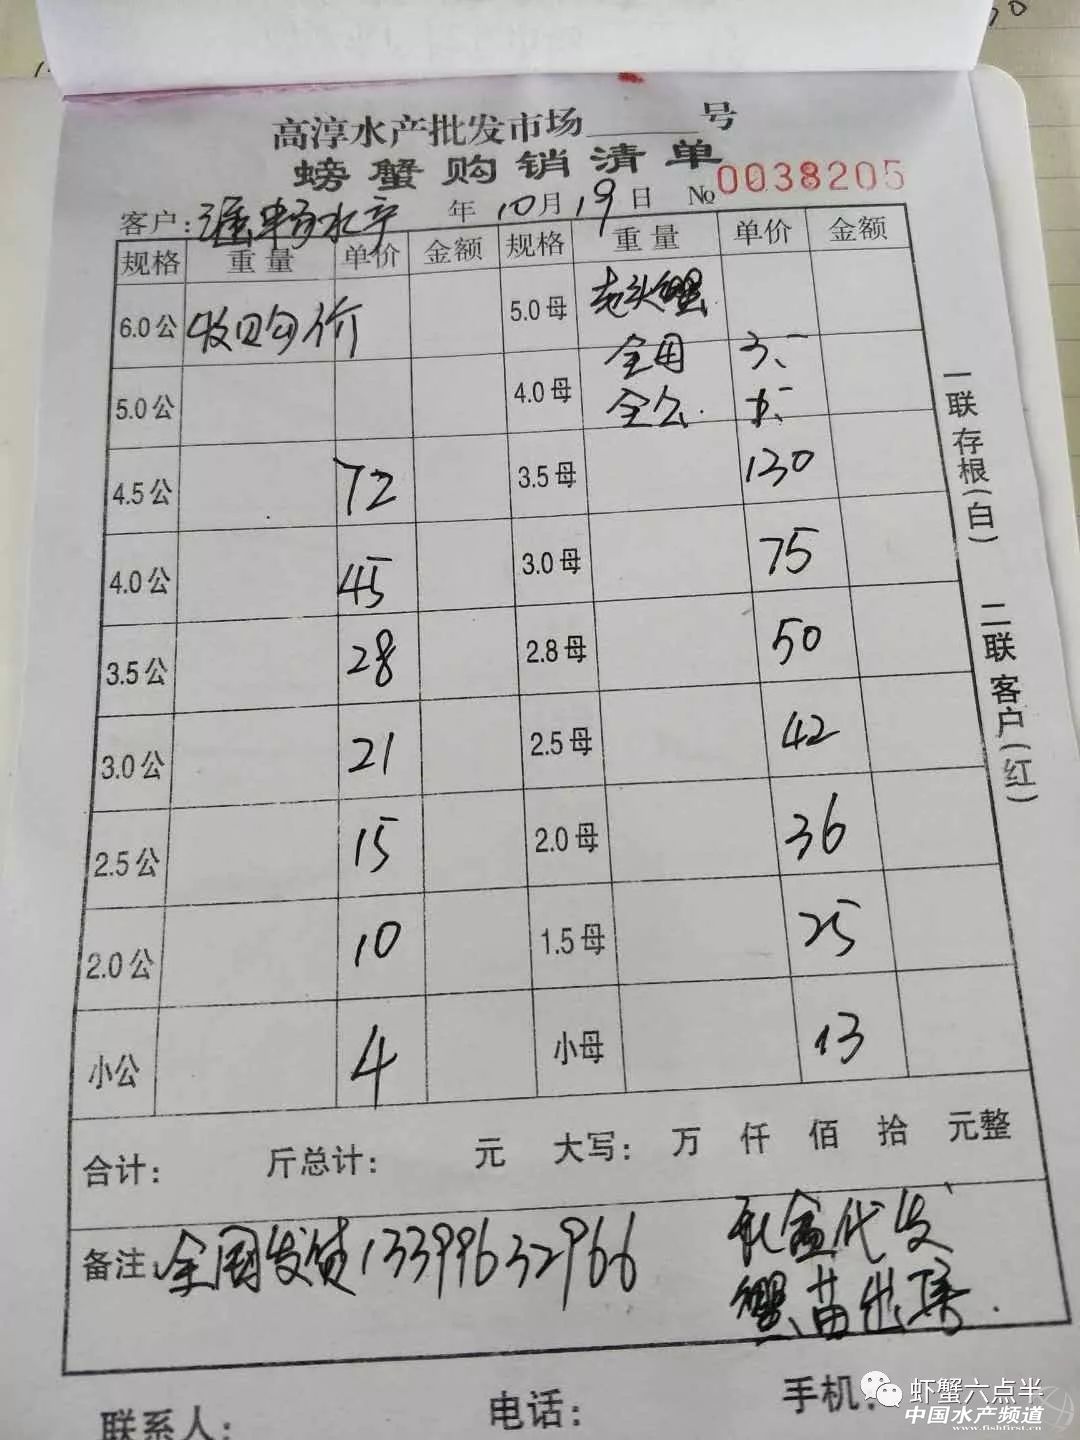 高淳水产批发市场______号
螃蟹购销清单
No 0038205
客户: 水产 年 10月 19日
规格 重量 单价 金额 规格 重量 单价 金额
6.0公 收购价 5.0母 老头蟹
全母 3.-
5.0公 4.0母 全公.
4.5公 72 3.5母 130
4.0公 45 3.0母 75
3.5公 28 2.8母 50
3.0公 21 2.5母 42
2.5公 15 2.0母 36
2.0公 10 1.5母 25
小公 4 小母 13
合计: 斤总计: 元 大写: 万 仟 佰 拾 元整
备注: 全国发货13399632966 礼盒代发
蟹苗出售.
联系人: 电话: 手机:
一联存根(白) 二联客户(红)
虾蟹六点半
中国水产频道
www.fishfirst.cn